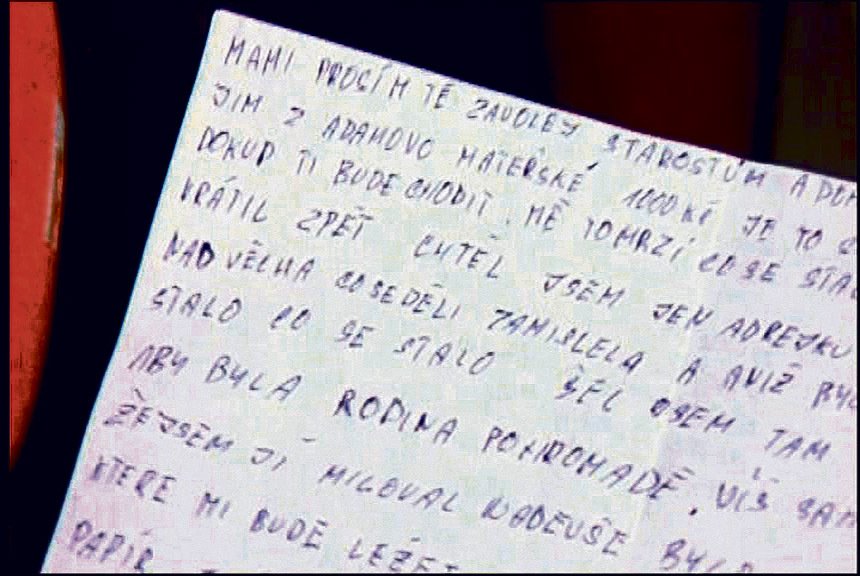 MAMI PROSÍM TĚ ZAVOLEJ STAROSTŮM A
JIM Z ADAMOVO MATEŘSKÉ 1000 KČ JE TO
DOKUD TI BUDE CHODIT. MĚ TO MRZÍ CO SE
VRÁTIL ZPĚT CHTĚL JSEM JEN ADREJKU
NAD VĚCMA CO SE DĚLI ZAMISLELA A ANIŽ
STALO CO SE STALO ŠEL JSEM TAM
ABY BYLA RODINA POHROMADĚ. VÍŠ
ŽE JSEM JÍ MILOVAL NADEVŠE
KTERÉ MI BUDE LEŽET
PAPÍR